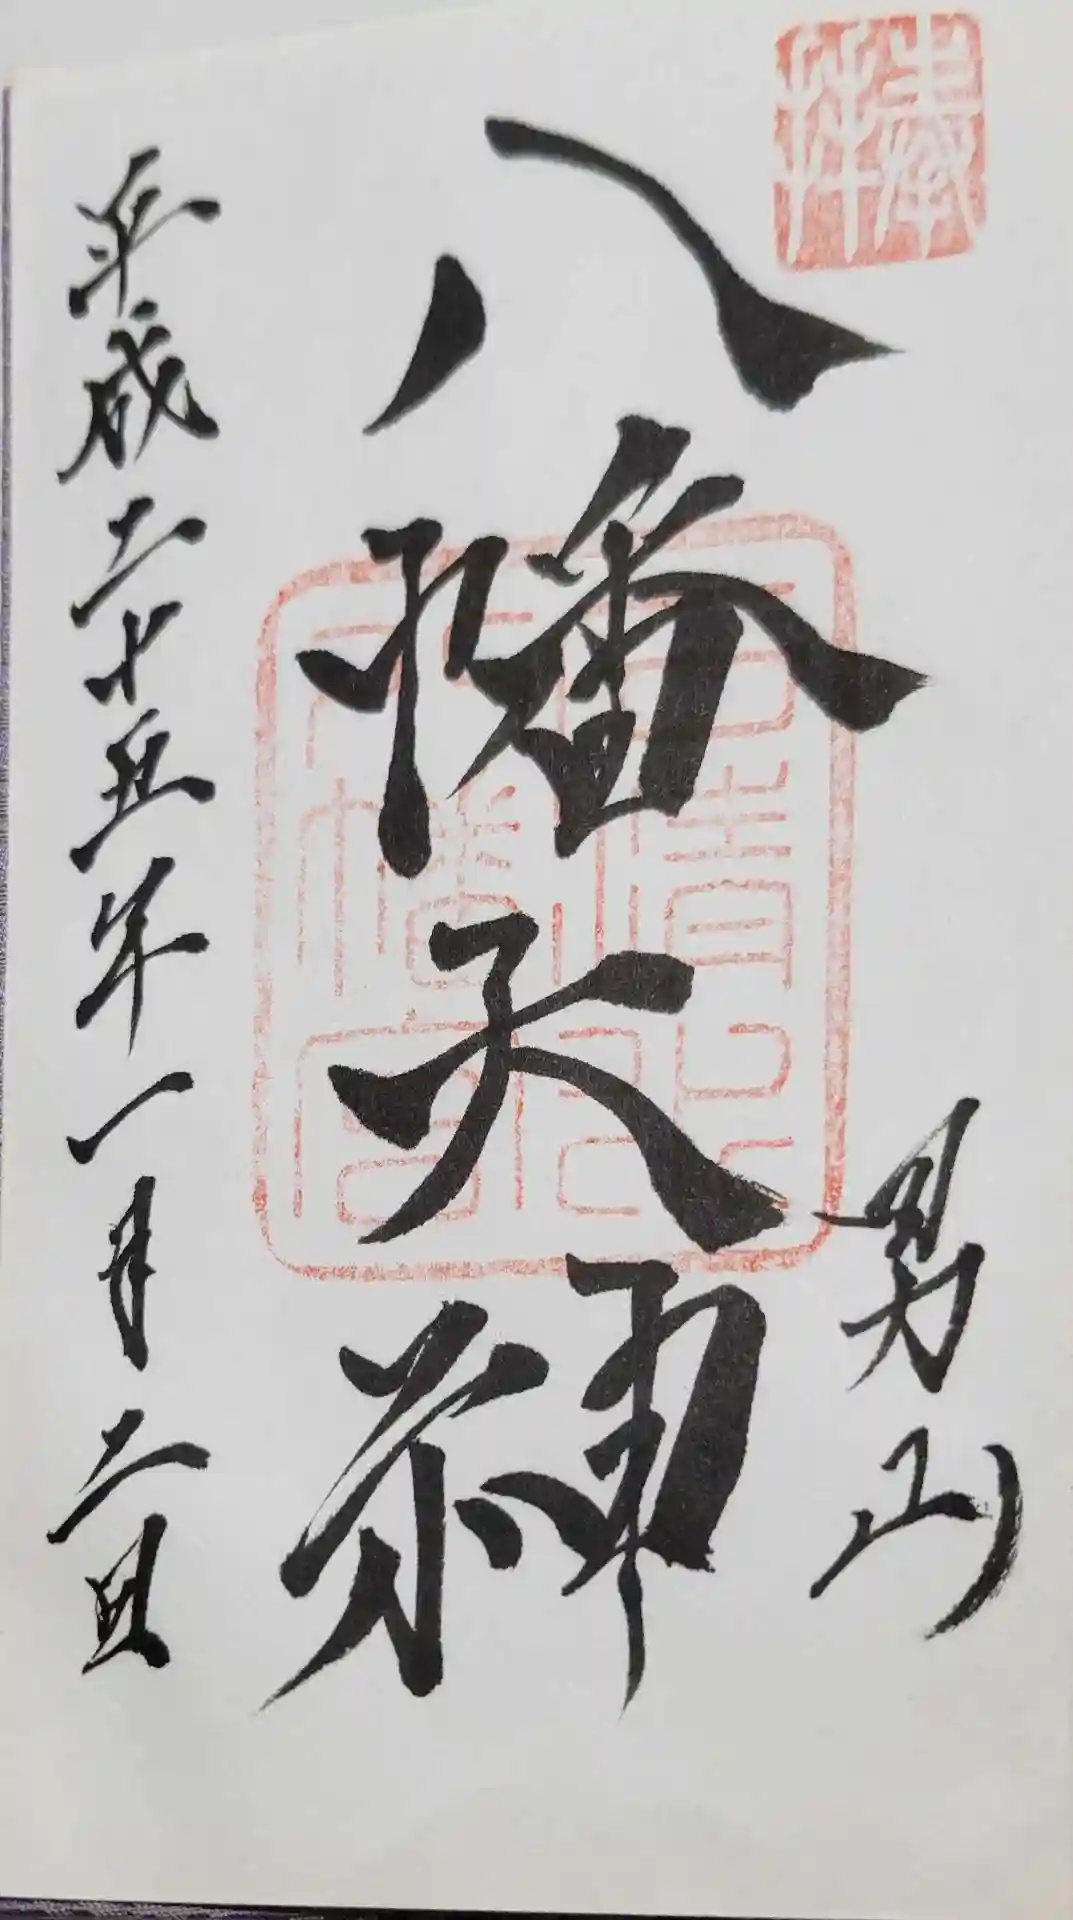 奉拝
男山
八幡大神
石清水八幡宮
平成二十五年一月二日